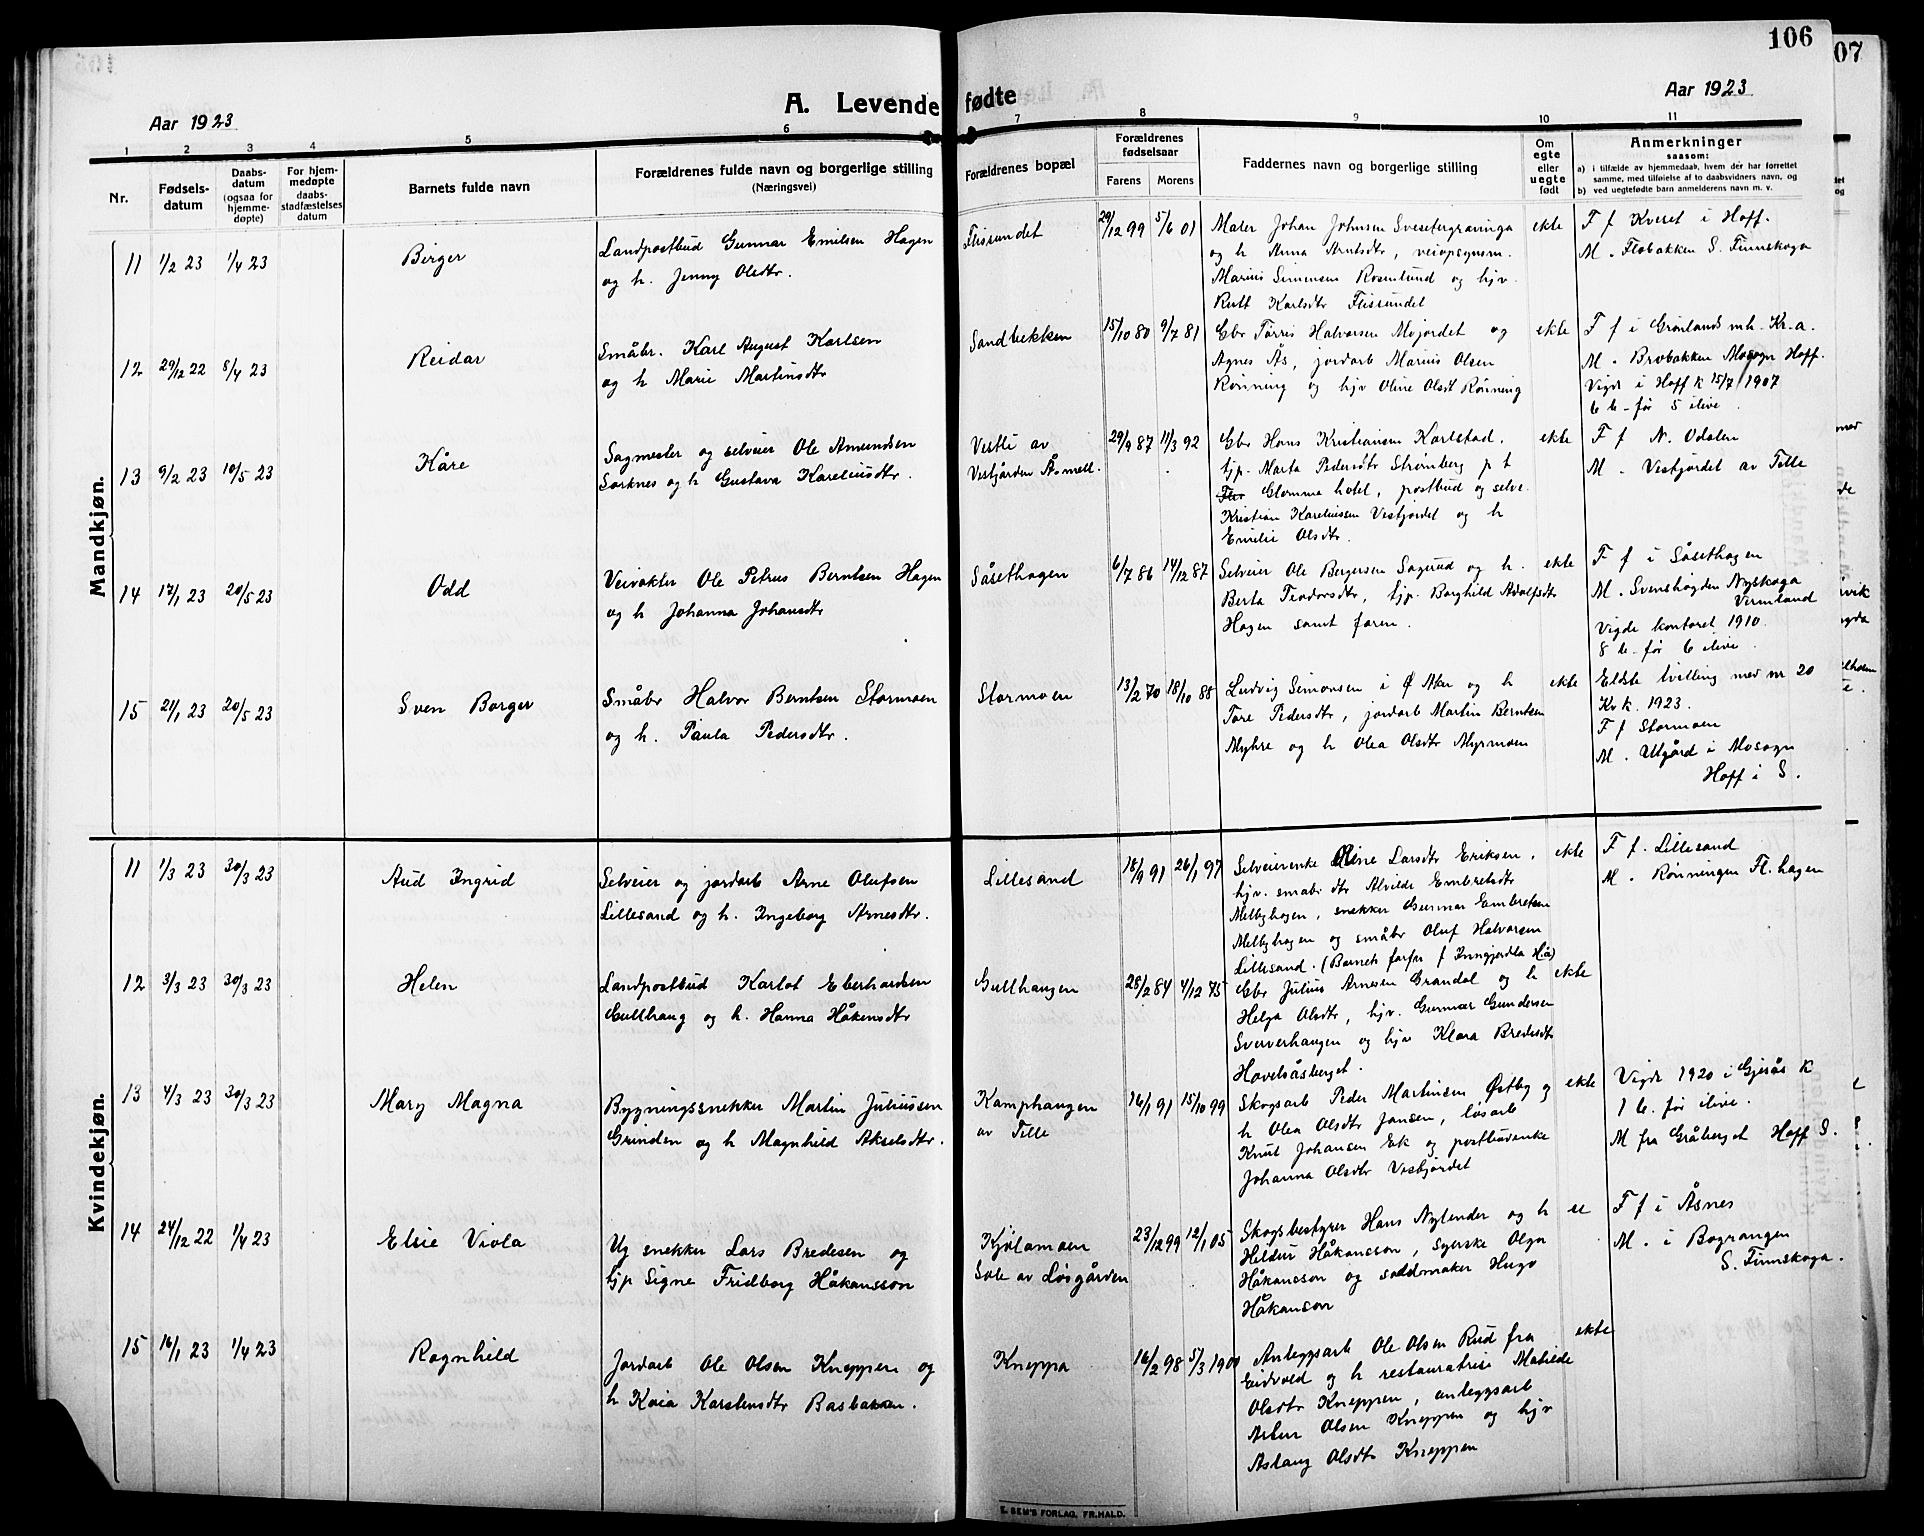 106
07
A. Levende fødte
Aar 1923
Aar 1923
1 2 3 4 5 6 7 8 9 10 11
Nr.
Fødsels-
datum
Daabs-
datum
(ogsaa for
hjemme-
døpte)
For hjem-
medøpte
daabs-
stadfæstelses
datum
Barnets fulde navn
Forældrenes fulde navn og borgerlige stilling
(Næringsvei)
Forældrenes bopæl
Forældrenes
fødselsaar
Farens Morens
Faddernes navn og borgerlige stilling
Om
egte
eller
uegte
født
Anmerkninger
saasom:
a) i tilfælde av hjemmedaab, hvem der har forrettet
samme, med tilføielse av to daabsvidners navn, og
b) ved uegtefødte barn anmelderens navn m. v.
Mandkjøn.
11 1/2 23 1/4 23 Birger
Landpostbud Gunnar Emilsen Hagen
og h. Jenny Olsdtr.
Flisundet
29/12 99 5/6 01
Maler Johan Johnsen Svesetergraninga
og h Anna Arntsdtr, veiopsynsm.
Marius Simensen Rosenlund og hjv.
Rutt Karlsdtr Flisundet
ekte
F f Kveset i Hoff.
M. Flobakken S. Finnskoga
12 29/12 22 8/4 23 Reidar
Småbr. Karl August Karlsen
og h Marie Martinsdtr
Sandbekken
15/10 80 9/7 81
Gbr Tørris Halvorsen Mojordet og
Agnes Ås, jordarb Marius Olsen
Rønning og hjv Oline Olsdt Rønning
ekte
F f i Grønlands mh. Kr.a.
M. Brobakken Mosogn Hoff.
Vigde i Hoff k 15/7 1907
6 b. før 5 ilive.
13 9/2 23 10/5 23 Kåre
Sagmester og selveier Ole Amundsen
Sorknes og h Gustava Kareliusdtr.
Vestli av
Vestgården Åsnell.
29/9 87 11/3 92
Gbr Hans Kristiansen Karlstad,
tjp. Marta Pedersdtr Strømberg p t
Glomma hotel, postbud og selve.
Kristian Kareliussen Vestjordet og h
Emilie Olsdtr.
ekte
F f N. Odalen
M. Vestjordet av Telle
14 17/1 23 20/5 23 Odd
Veivokter Ole Petrus Berntsen Hagen
og h Johanna Johansdtr
Såsethagen
6/7 86 14/12 87
Selveier Ole Bergersen Sagrud og h.
Berta Teodorsdtr, tjp. Borghild Adolfsdtr
Hagen samt faren.
ekte
F f i Såsethagen
M. Svenshøgden Nyskoga
Vermland
Vigde kontoret 1910.
8 b. før 6 ilive.
15 21/1 23 20/5 23 Sven Borger
Småbr Halvor Berntsen Stormoen
og h. Paula Pedersdtr.
Stormoen
13/2 70 18/10 88
Ludvig Simonsen i Ø Aker og h
Tore Pedersdtr, jordarb Martin Berntsen
Myhre og h Olea Olsdtr Myrmoen
ekte
Eldste tvilling med nr 20
Kvk. 1923.
F f Stormoen
M. Utgård i Mosogn
Hoff i S.
Kvindekjøn.
11 1/3 23 30/3 23 Aud Ingrid
Selveier og jordarb Arne Olufsen
Lillesand og h. Ingeborg Arnesdtr.
Lillesand
18/9 91 26/1 97
Selveierenke Oline Larsdtr Eriksen,
hjv. småb. dtr Alvilde Embretsdtr
Melbyhagen, snekker Gunnar Embretsen
Melbyhagen og småbr Oluf Halvorsen
Lillesand. (Barnets farfar f Inngjerdla H.å)
ekte
F f. Lillesand
M. Rønningen Fl. hagen
12 3/3 23 30/3 23 Helen
Landpostbud Karlot Eberhardsen
Gullhaug og h. Hanna Håkensdtr
Gullhaugen
28/2 84 4/12 75
Gbr Julius Arnesen Grandal og h
Helga Olsdtr, hjv. Gunnar Gundersen
Sververhaugen og hjv Klara Bredesdtr
Hovelsåsberget.
ekte
13 4/3 23 30/3 23 Mary Magna
Bygningssnekker Martin Juliussen
Grinden og h Magnhild Akselsdtr.
Kamphaugen
av Telle
16/1 91 15/10 99
Skogsarb Peder Martinsen Østby og
h Olea Olsdtr Jansen, løsarb
Knut Johansen Ek og postbudenke
Johanna Olsdtr Vestjordet
ekte
Vigde 1920 i Gjesås K
1 b. før ilive.
M fra Gråberget Hoff S.
14 24/12 22 1/4 23 Elsie Viola
Ug snekker Lars Bredesen og
tjp Signe Fridborg Håkansson
Kjølamoen
Sole av Løsgården
23/12 99 12/1 05
Skogsbestyrer Hans Nylender og h
Heldur Håkansson, syerske Olga
Håkansson og saddmaker Hugo
Håkanson
ue
F f i Åsnes
M. i Bograngen
S. Finnskoga.
15 16/1 23 1/4 23 Ragnhild
Jordarb Ole Olsen Kneppen og
h Kaia Karstensdtr Basbakken.
Kneppa
16/2 98 5/3 1900
Anleggsarb Ole Olsen Rud fra
Eidvold og h restauratrise Matilde
Olsdtr Kneppen, anleggsarb
Artur Olsen Kneppen og hjv
Aslaug Olsdtr Kneppen
ekte
E. SEM'S FORLAG, FR.HALD.